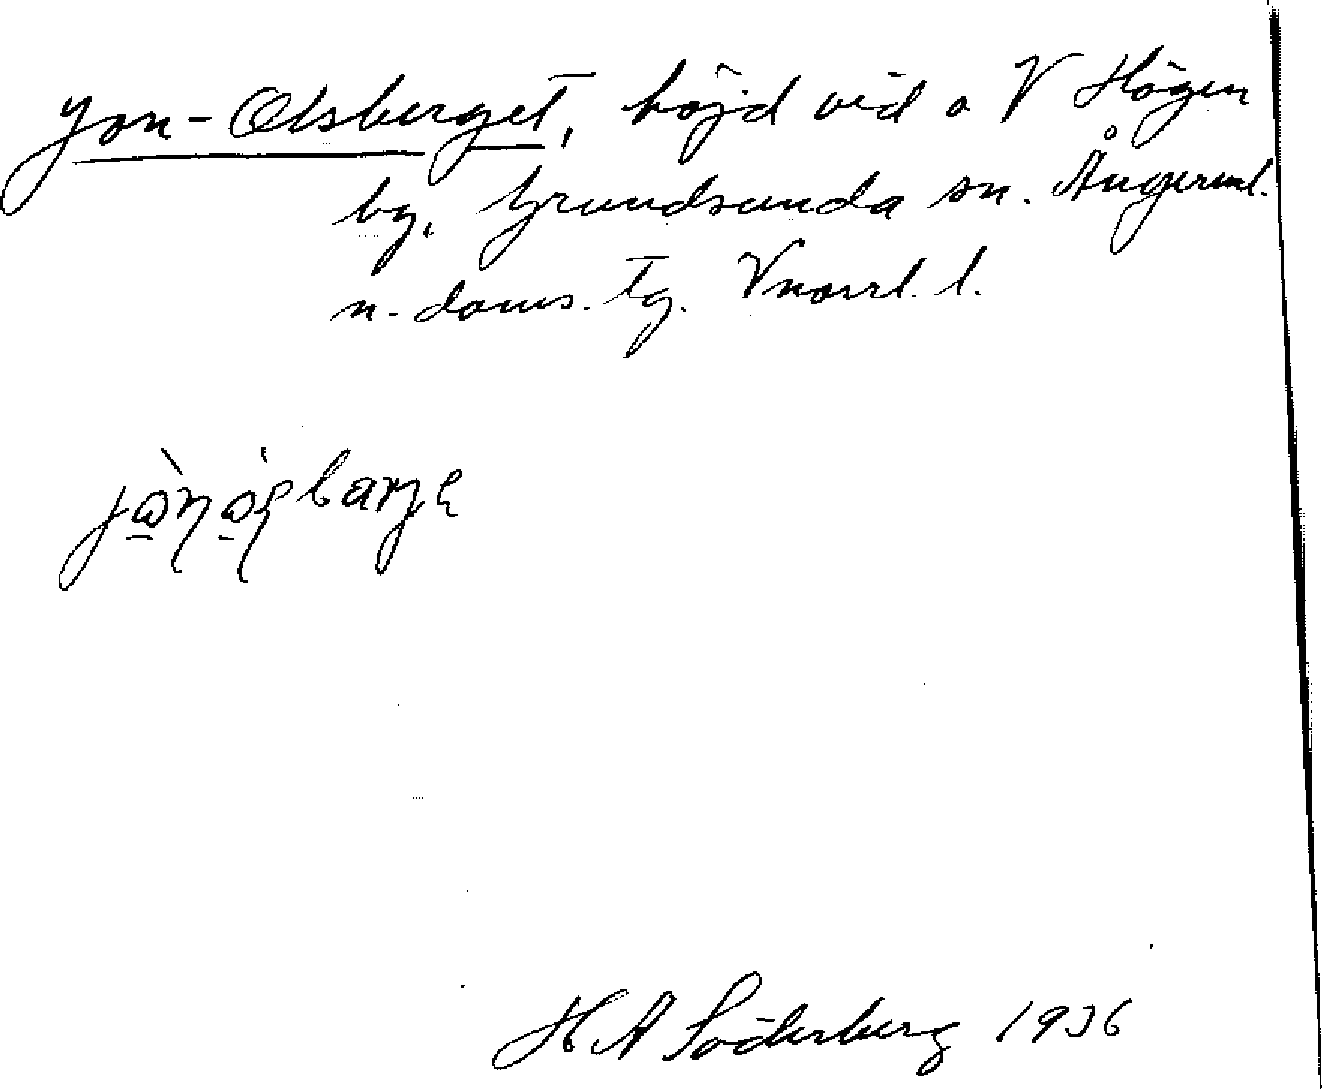 Jon-Olsberget, höjd vid o V Högen
by, Grundsunda sn. Ångerml.
n. doms. tg. Vnorrl. l.
H A Söderberg 1936